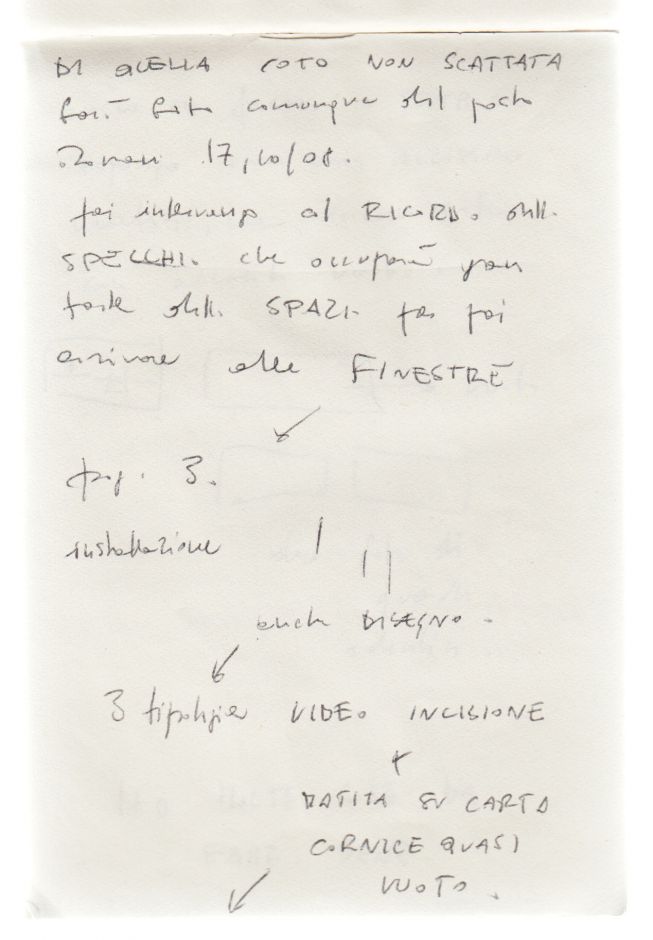 DI QUELLA FOTO NON SCATTATA
sarà fatta comunque dal posto
17,10/08.
poi intervengo al RICORDO degli
SPECCHI che occuperà gran
parte degli SPAZI per poi
arrivare alle FINESTRE
pag. 3.
installazione
anche DISEGNO.
3 tipologie VIDEO INCISIONE
+
MATITA SU CARTA
CORNICE QUASI
VUOTO.